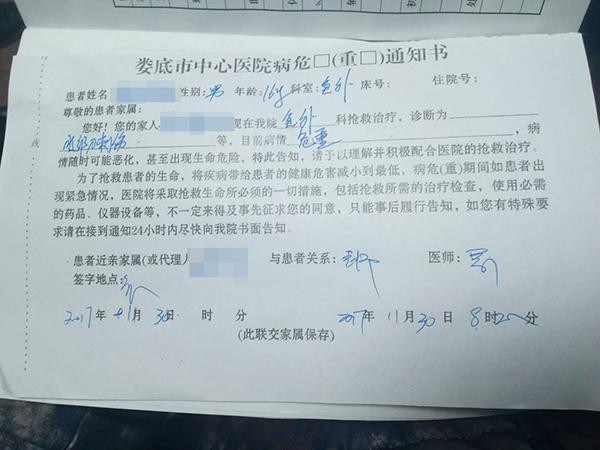 娄底市中心医院病危□(重□)通知书
患者姓名 性别:男 年龄:16岁 科室:急外 床号: 住院号:
尊敬的患者家属:
您好!您的家人 现在我院 急外 科抢救治疗,诊断为
等,目前病情 危重 ,病
情随时可能恶化,甚至出现生命危险,特此告知,请予以理解并积极配合医院的抢救治疗。
为了抢救患者的生命,将疾病带给患者的健康危害减小到最低,病危(重)期间如患者出
现紧急情况,医院将采取抢救生命所必须的一切措施,包括抢救所需的治疗检查,使用必需
的药品、仪器设备等,不一定来得及事先征求您的同意,只能事后履行告知,如您有特殊要
求请在接到通知24小时内尽快向我院书面告知。
患者近亲家属(或代理人 与患者关系: 医师:
签字地点:
2017年 11月 30日 时 分 2017年 11月 30日 8时20分
(此联交家属保存)
线